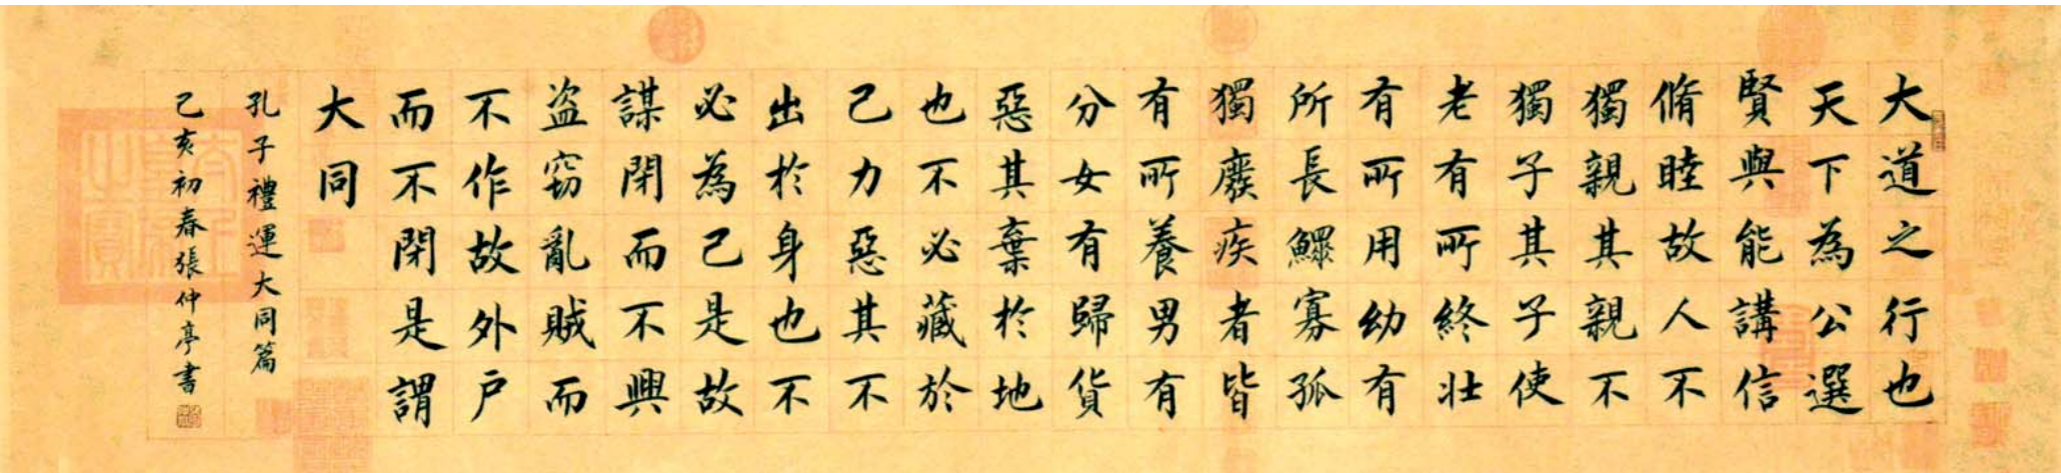 大道之行也
天下為公選
賢與能講信
脩睦故人不
獨親其親不
獨子其子使
老有所終壯
有所用幼有
所長鰥寡孤
獨廢疾者皆
有所養男有
分女有歸貨
惡其棄於地
也不必藏於
己力惡其不
出於身也不
必為己是故
謀閉而不興
盗竊亂賊而
不作故外戶
而不閉是謂
大同
孔子禮運大同篇
己亥初春張仲亭書